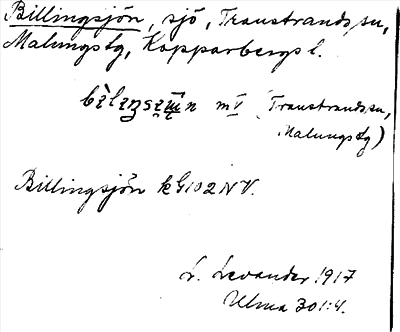 Billingsjön, sjö, Transtrands sn,
Malungs tg, Kopparbergs l.
mV (Transtrands sn,
Malungs tg)
Billingsjön kG102NV.
L. Levander 1917
Ulma 301:4.